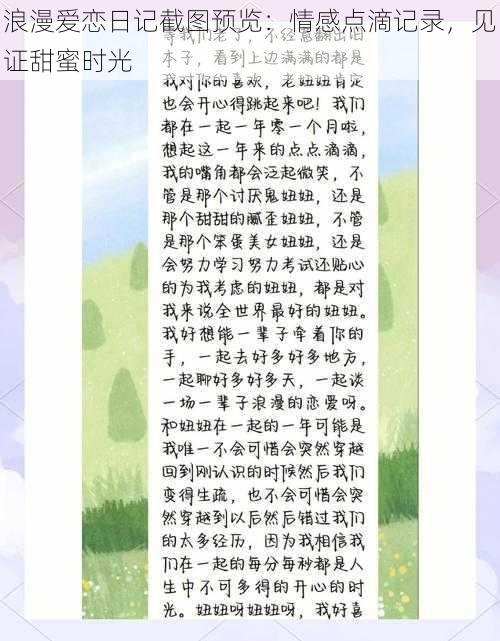 浪漫爱恋日记截图预览：情感点滴记录，见
证甜蜜时光
等我们老了，不经意翻出旧
本子，看到上边满满的都是
我对你的喜欢，老妞妞肯定
也会开心得跳起来吧！我们
都在一起一年零一个月啦，
想起这一年来的点点滴滴，
我的嘴角都会泛起微笑，不
管是那个讨厌鬼妞妞，还是
那个甜甜的腻歪妞妞，不管
是那个笨蛋美女妞妞，还是
会努力学习努力考试还贴心
的为我考虑的妞妞，都是对
我来说全世界最好的妞妞。
我好想能一辈子牵着你的
手，一起去好多好多地方，
一起聊好多好多天，一起谈
一场一辈子浪漫的恋爱呀。
和妞妞在一起的一年可能是
我唯一不会可惜会突然穿越
回到刚认识的时候然后我们
变得生疏，也不会可惜会突
然穿越到以后然后错过我们
的太多经历，因为我相信我
们在一起的每分每秒都是人
生中不可多得的开心的时
光。妞妞呀妞妞呀，我好喜